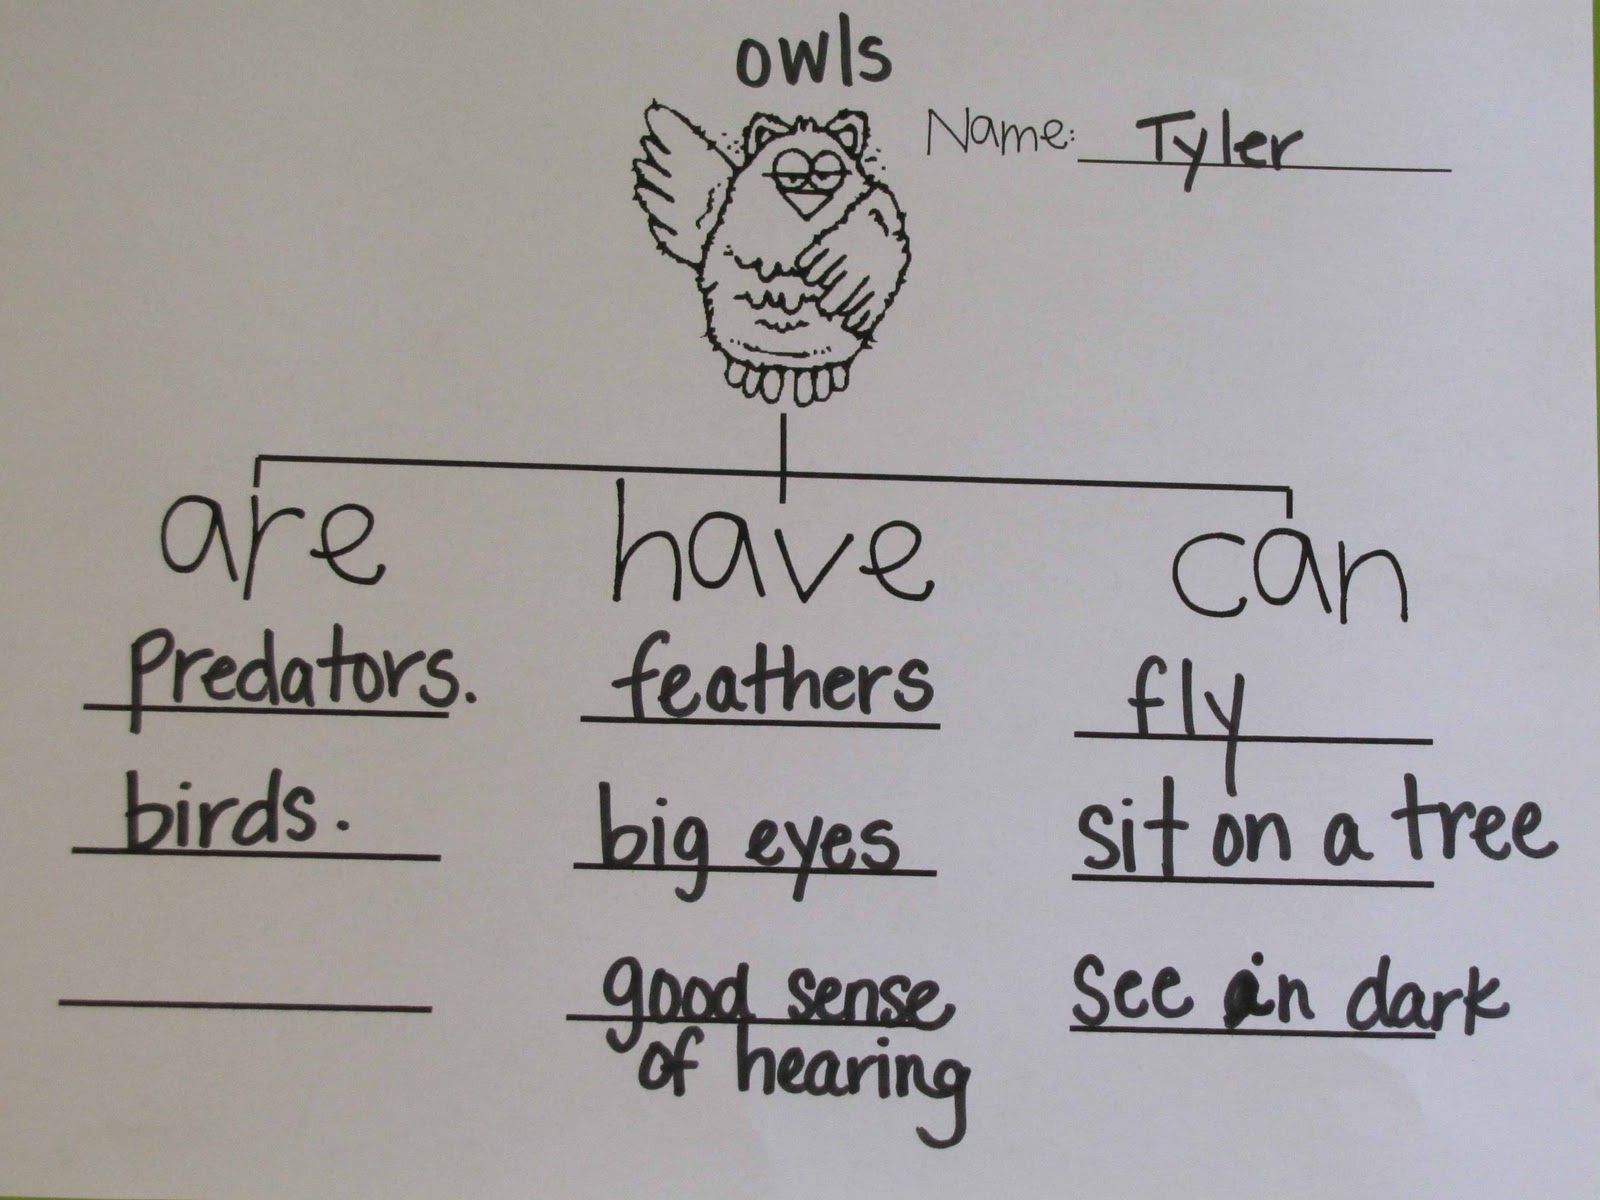 owls
Name: Tyler
are
have
can
predators.
feathers
fly
birds.
big eyes
sit on a tree
good sense
of hearing
see in dark